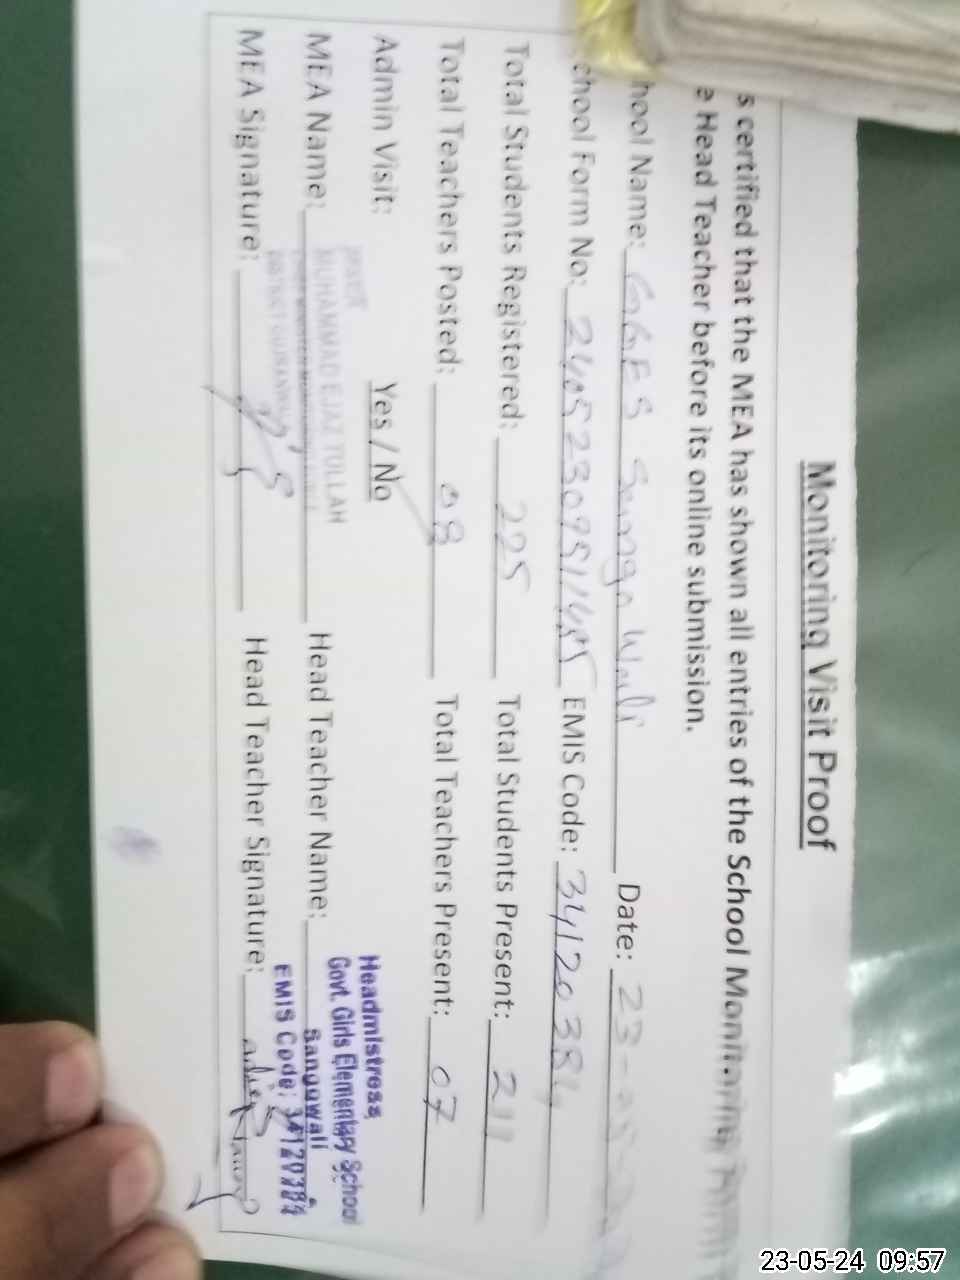 Monitoring Visit Proof
s certified that the MEA has shown all entries of the School Monitoring Form
e Head Teacher before its online submission.
hool Name: GGES Sango Wali Date: 23-05-
chool Form No: EMIS Code: 34120384
Total Students Registered: 225 Total Students Present: 211
Total Teachers Posted: 08 Total Teachers Present: 07
Admin Visit: Yes / No
MEA Name: MUHAMMAD EJAZ TOLLAH Head Teacher Name:
Headmistress
Govt. Girls Elementary School
Sanguwali
EMIS Code: 34120384
MEA Signature: Head Teacher Signature:
23-05-24 09:57